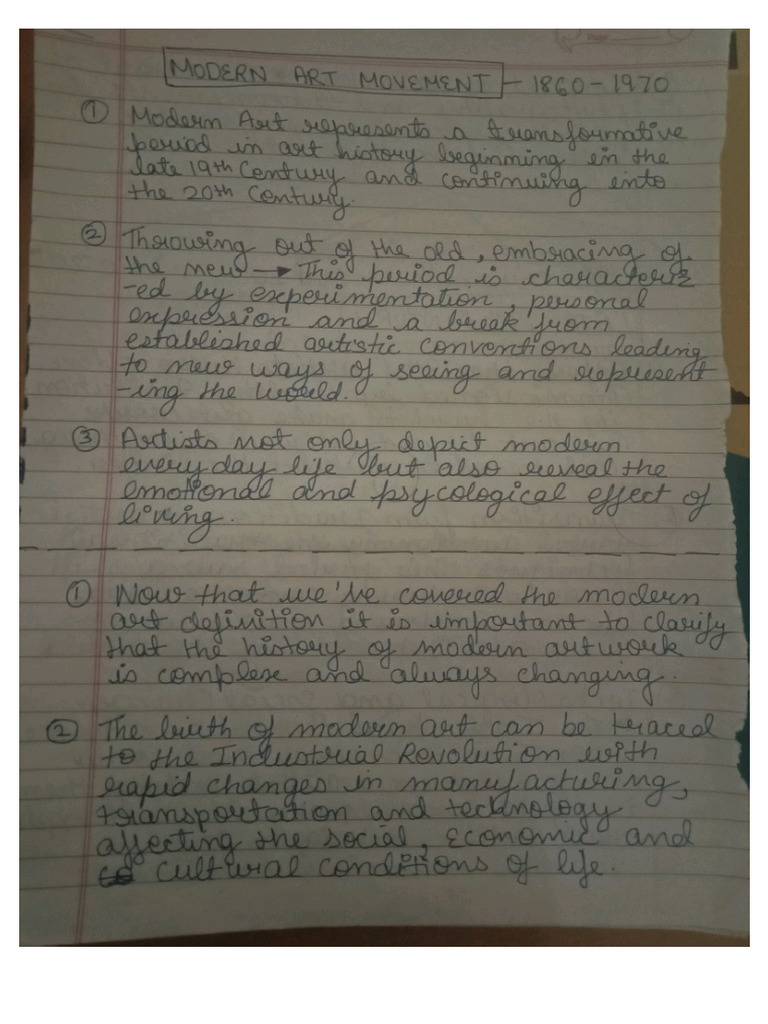 MODERN ART MOVEMENT - 1860-1970
① Modern Art represents a transformative
period in art history beginning in the
late 19th Century and continuing into
the 20th Century.
② Throwing out of the old, embracing of
the new → This period is characteriz
-ed by experimentation, personal
expression and a break from
established artistic conventions leading
to new ways of seeing and represent
-ing the world.
③ Artists not only depict modern
everyday life but also reveal the
emotional and psycological effect of
living.
① Now that we've covered the modern
art definition it is important to clarify
that the history of modern artwork
is complex and always changing.
② The birth of modern art can be traced
to the Industrial Revolution with
rapid changes in manufacturing,
transportation and technology
affecting the social, economic and
cultural conditions of life.